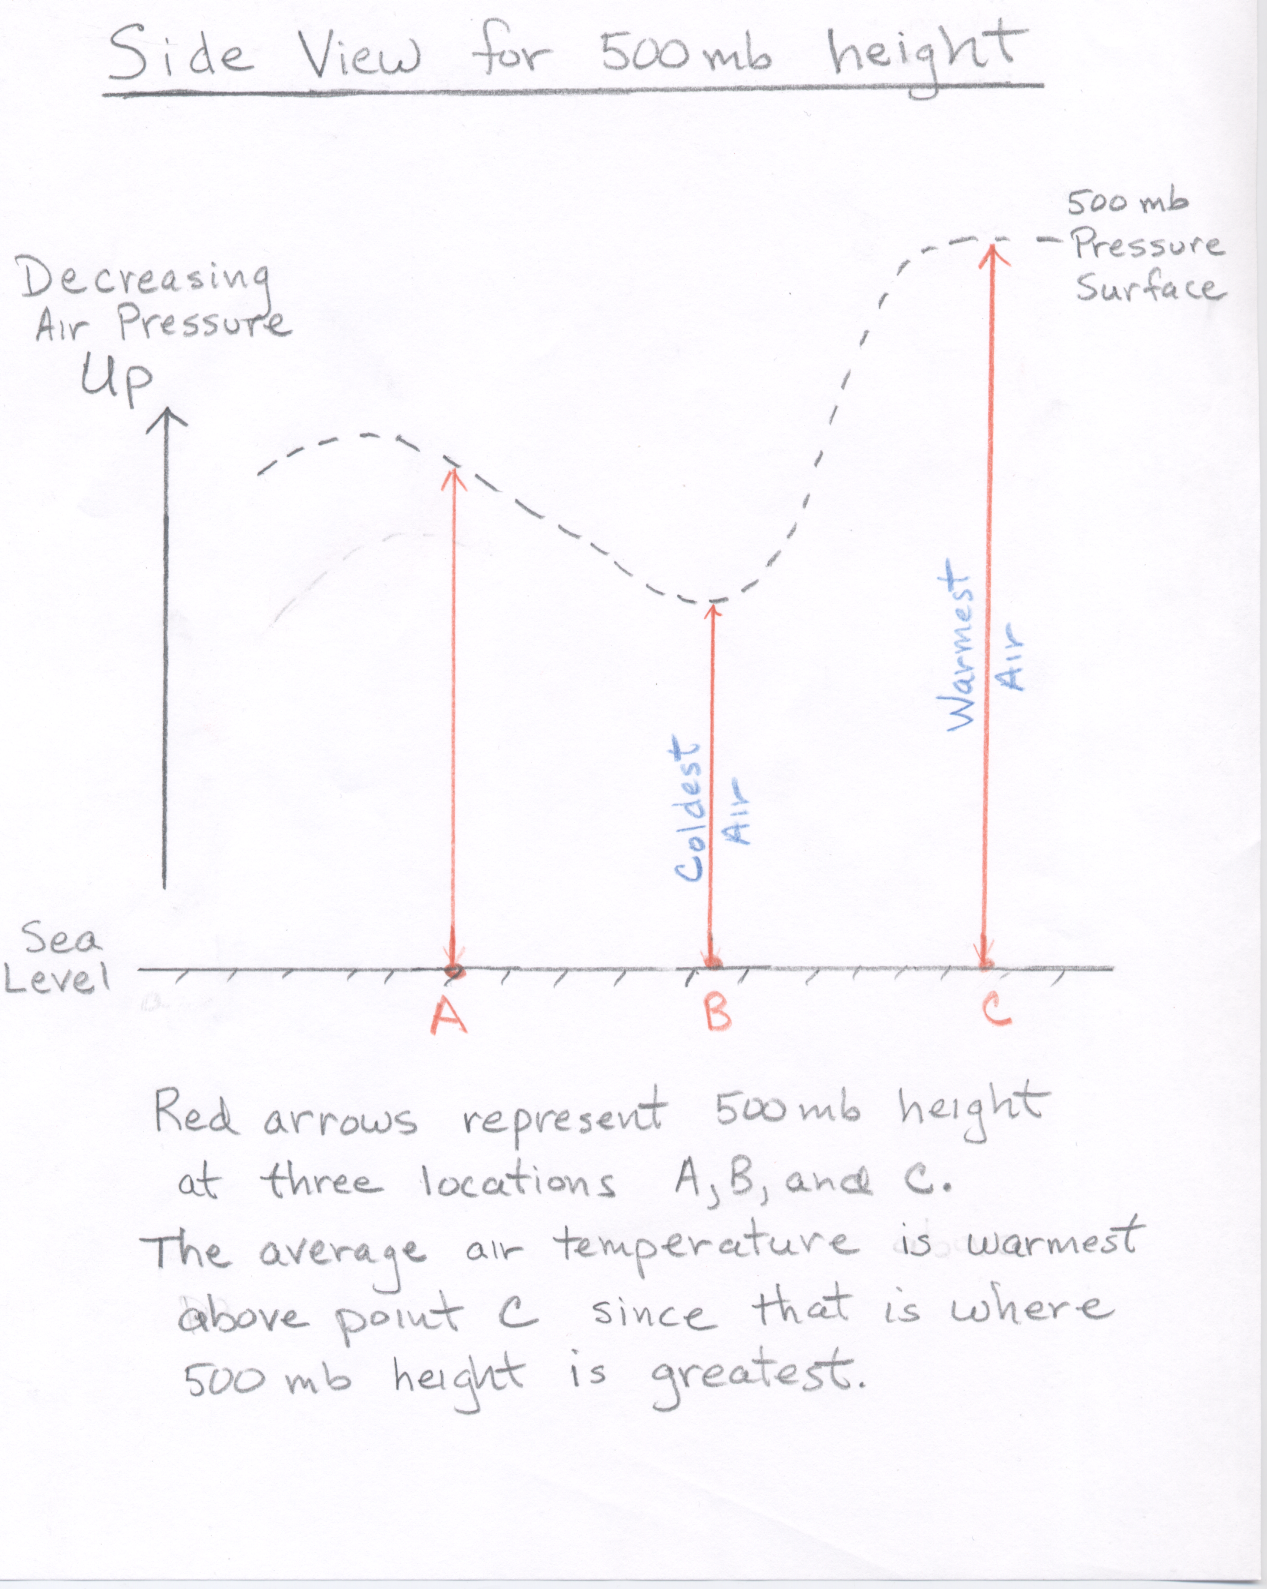 Side View for 500 mb height
500 mb
Pressure
Surface
Decreasing
Air Pressure
Up
Warmest
Air
Coldest
Air
Sea
Level
A
B
C
Red arrows represent 500 mb height
at three locations A, B, and C.
The average air temperature is warmest
above point C since that is where
500 mb height is greatest.